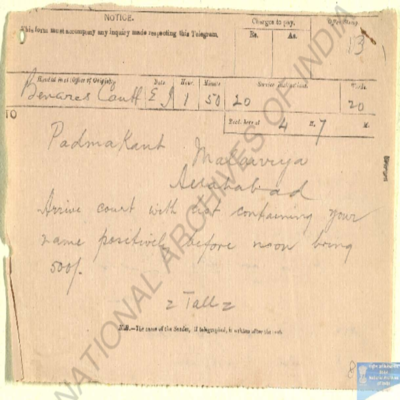 NOTICE.
This form must accompany any inquiry made respecting this Telegram.
Charges to pay.
Rs. As.
13
Handed in at (Office of Origin).
Date Hour. Minute
Benares Cantt E 1 50 20 20
TO
Recd. here at 4 H. 7 M.
Padmakant Malaviya
Allahabad
Arrive court with list containing your
name positively before noon bring
500/.
= Tall =
N.B.—The name of the Sender, if telegraphed, is written after the text.
NATIONAL ARCHIVES OF INDIA